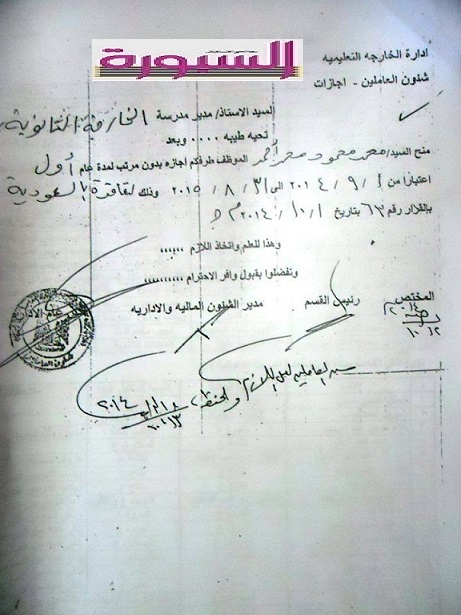 السبورة
ادارة الخارجه التعليميه
شئون العاملين - اجازات
السيد الاستاذ/ مدير مدرسة الخارجة الثانوية
تحيه طيبه .... وبعد
منح السيد/ محمد محمود محمد أحمد الموظف طرفكم اجازه بدون مرتب لمدة عام أول
اعتبارا من ١ / ٩ / ٢٠١٤ الى ٣١ / ٨ / ٢٠١٥ وذلك لعاقدة بالسعودية
بالقرار رقم ٦٣ بتاريخ ١ / ١٠ / ٢٠١٤ م
وهذا للعلم واتخاذ اللازم ،،،،،،
وتفضلوا بقبول وافر الاحترام ،،،،،،،،،،
المختص رئيس القسم مدير الشئون الماليه والاداريه
شئون العاملين
٢٠١٤